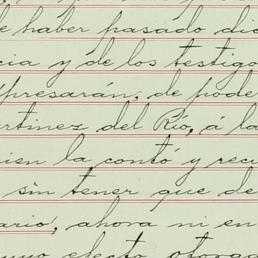 e haber pasado dic
cia y de los testigo
presarán, de pode
artinez del Río, á la
ien la contó y recu
sin tener que de
ario, ahora ni en